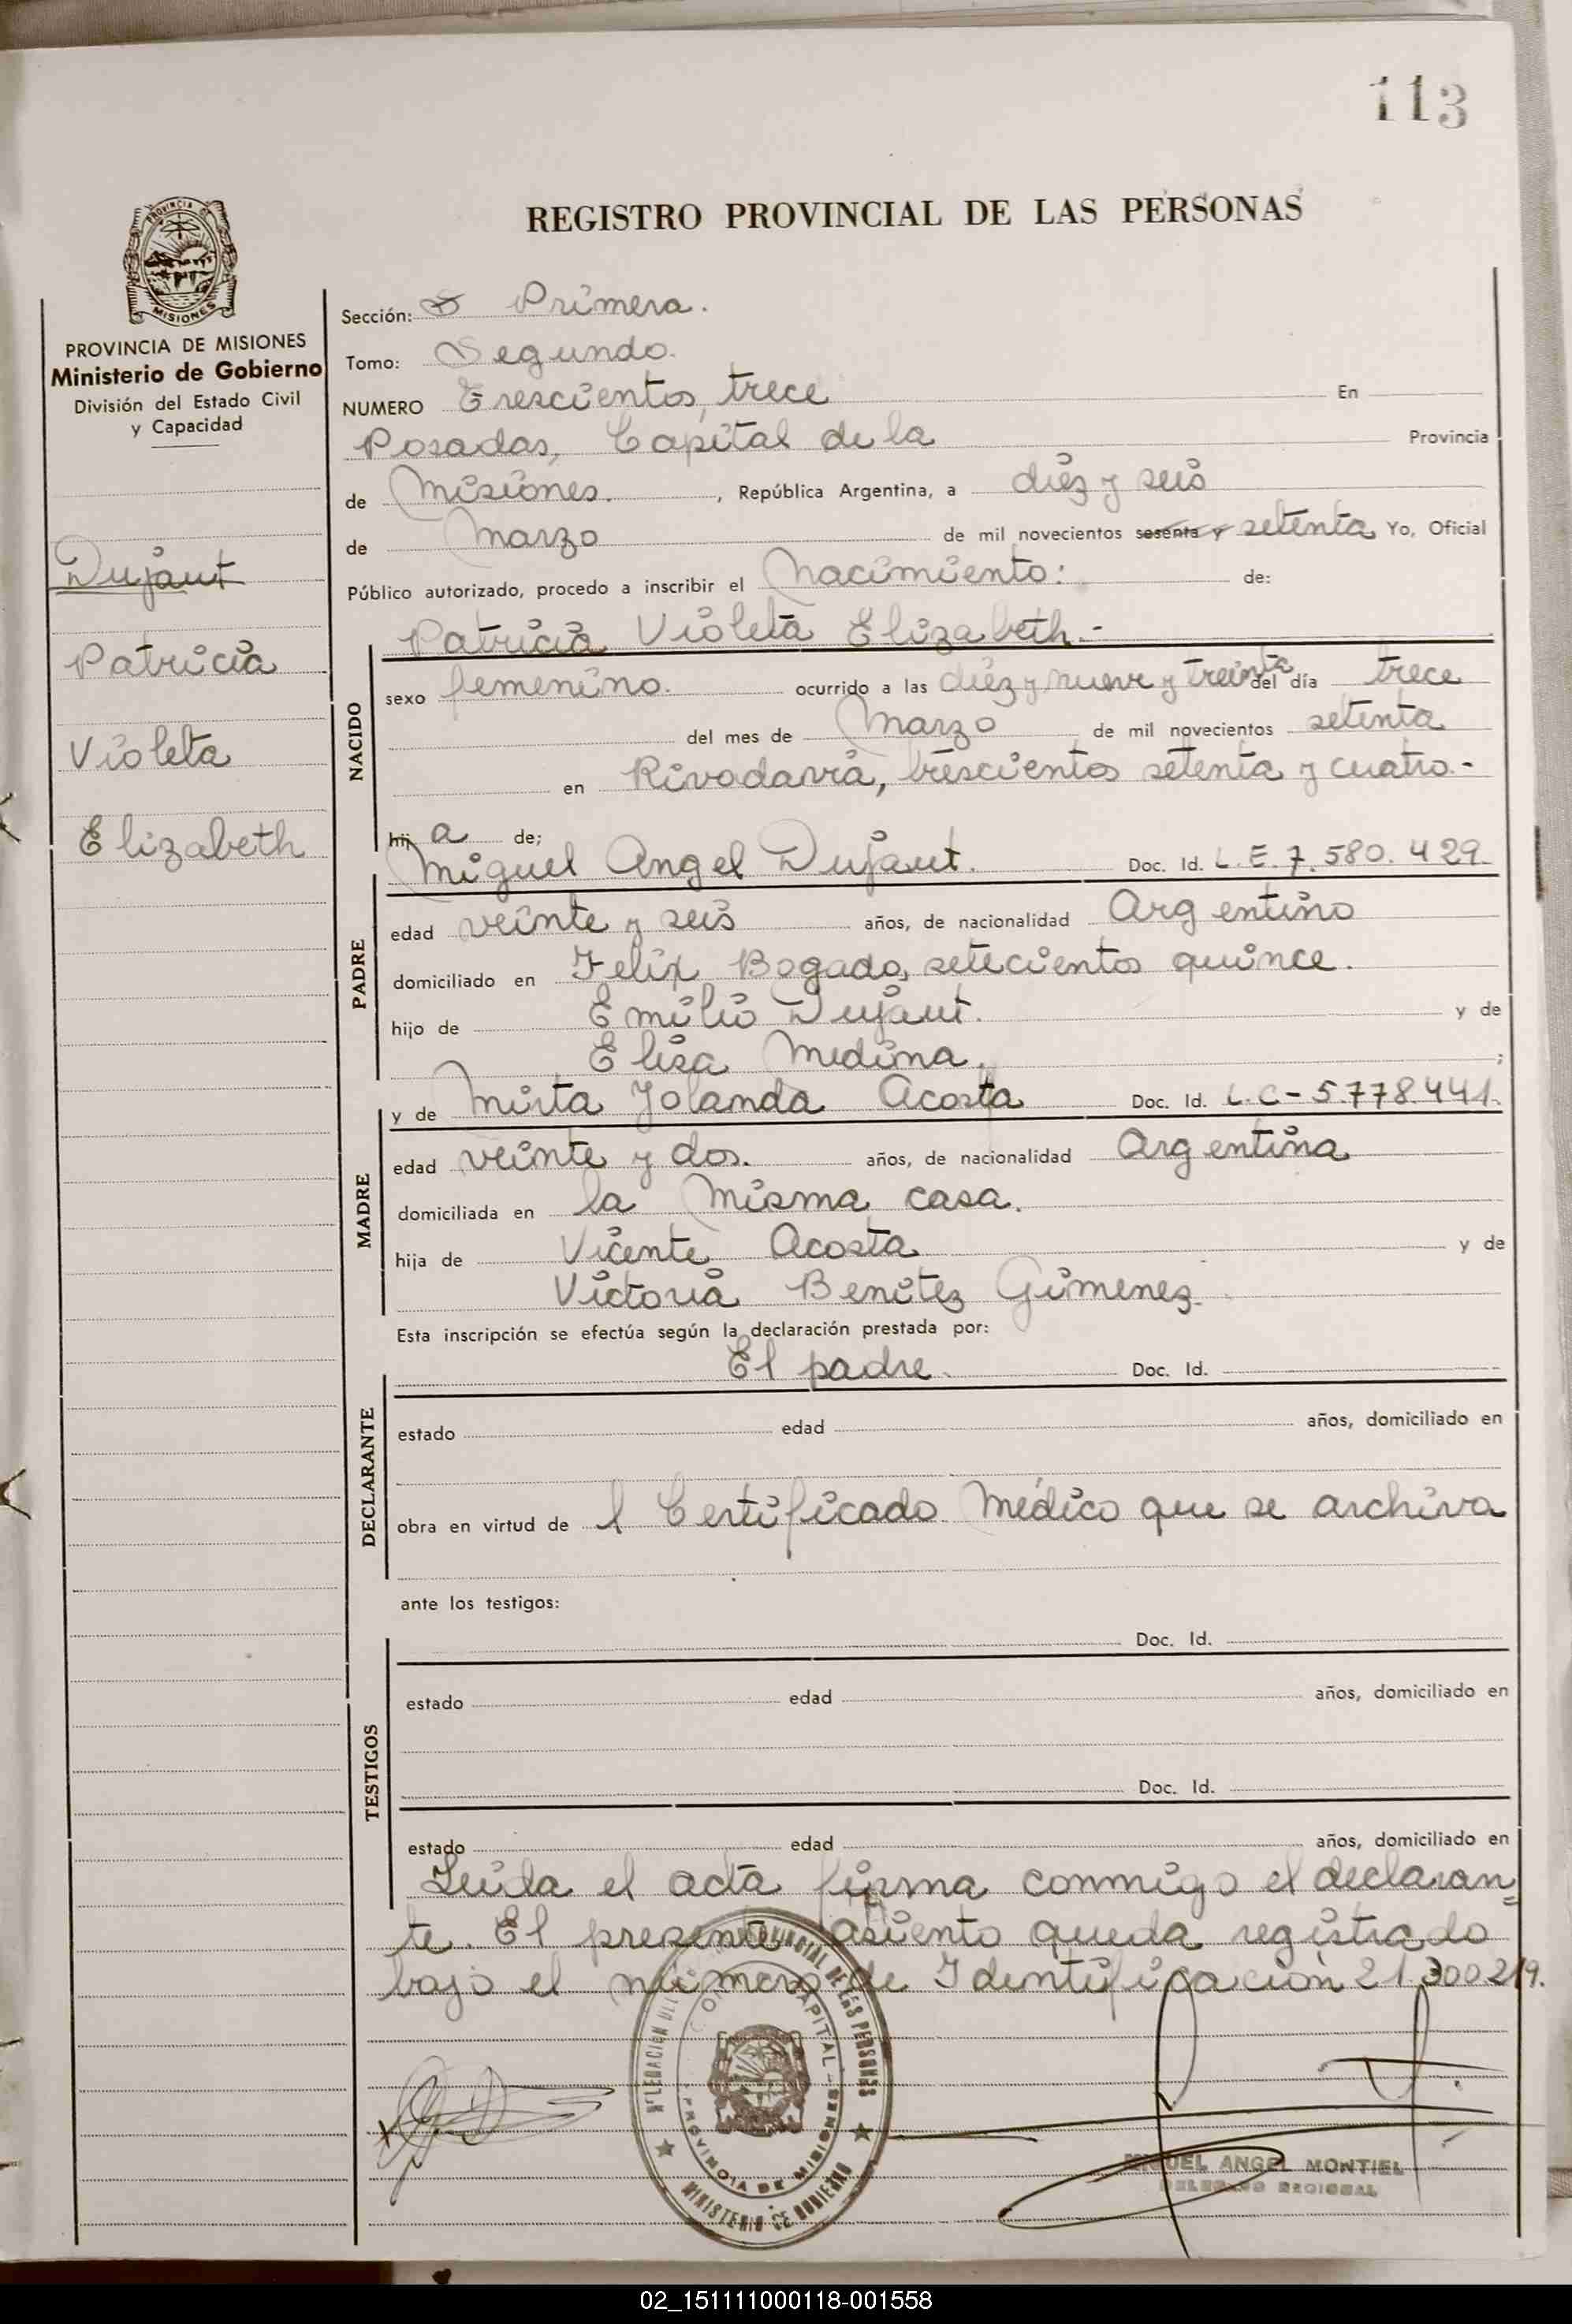 113
REGISTRO PROVINCIAL DE LAS PERSONAS
PROVINCIA DE MISIONES
Ministerio de Gobierno
División del Estado Civil
y Capacidad
Dujaut
Patricia
Violeta
Elizabeth
Sección: Primera.
Tomo: Segundo.
NUMERO Trescientos, trece En
Posadas, Capital de la Provincia
de Misiones. , República Argentina, a diéz y seis
de Marzo de mil novecientos sesenta y setenta Yo, Oficial
Público autorizado, procedo a inscribir el Nacimiento: de:
Patricia Violeta Elizabeth.-
NACIDO
sexo femenino. ocurrido a las diéz y nueve y treinta del día trece
del mes de Marzo de mil novecientos setenta
en Rivadavia, trescientos setenta y cuatro.-
hij a de;
Miguel Angel Dujaut. Doc. Id. L.E. 7.580.429.
PADRE
edad veinte y seis años, de nacionalidad Argentino
domiciliado en Felix Bogado, setecientos quince.
hijo de Emilio Dujaut. y de
Elisa Medina. ;
y de Mirta Yolanda Acosta Doc. Id. L.C-5.778.441.
MADRE
edad veinte y dos. años, de nacionalidad Argentina
domiciliada en la misma casa.
hija de Vicente Acosta y de
Victoria Benitez Gimenez.
Esta inscripción se efectúa según la declaración prestada por:
El padre. Doc. Id.
DECLARANTE
estado edad años, domiciliado en
obra en virtud de l Certificado Médico que se archiva
ante los testigos:
Doc. Id.
TESTIGOS
estado edad años, domiciliado en
Doc. Id.
estado edad años, domiciliado en
Leida el acta firma conmigo el declaran=
te. El presente asiento queda registrado
bajo el numero de Identificación 21.300219.
PROVINCIAL DE LAS PERSONAS
CAPITAL
PROVINCIA DE MISIONES
MINISTERIO DE GOBIERNO
MIGUEL ANGEL MONTIEL
DELEGADO REGIONAL
02_151111000118-001558